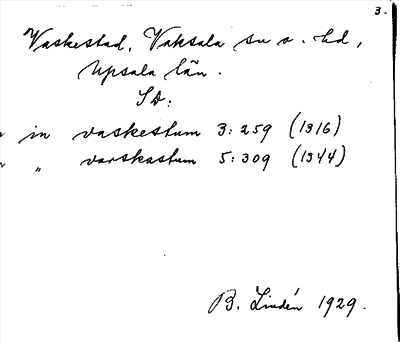 3.
Vaskestad, Vaksala sn o. hd,
Upsala län.
SD:
in vaskestum 3:259 (1316)
„ varskastum 5:309 (1344)
B. Lindén 1929.